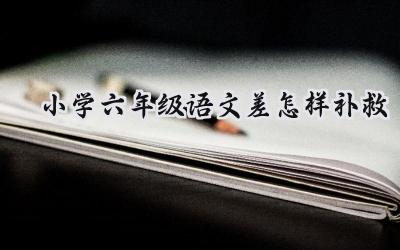 小学六年级语文差怎样补救